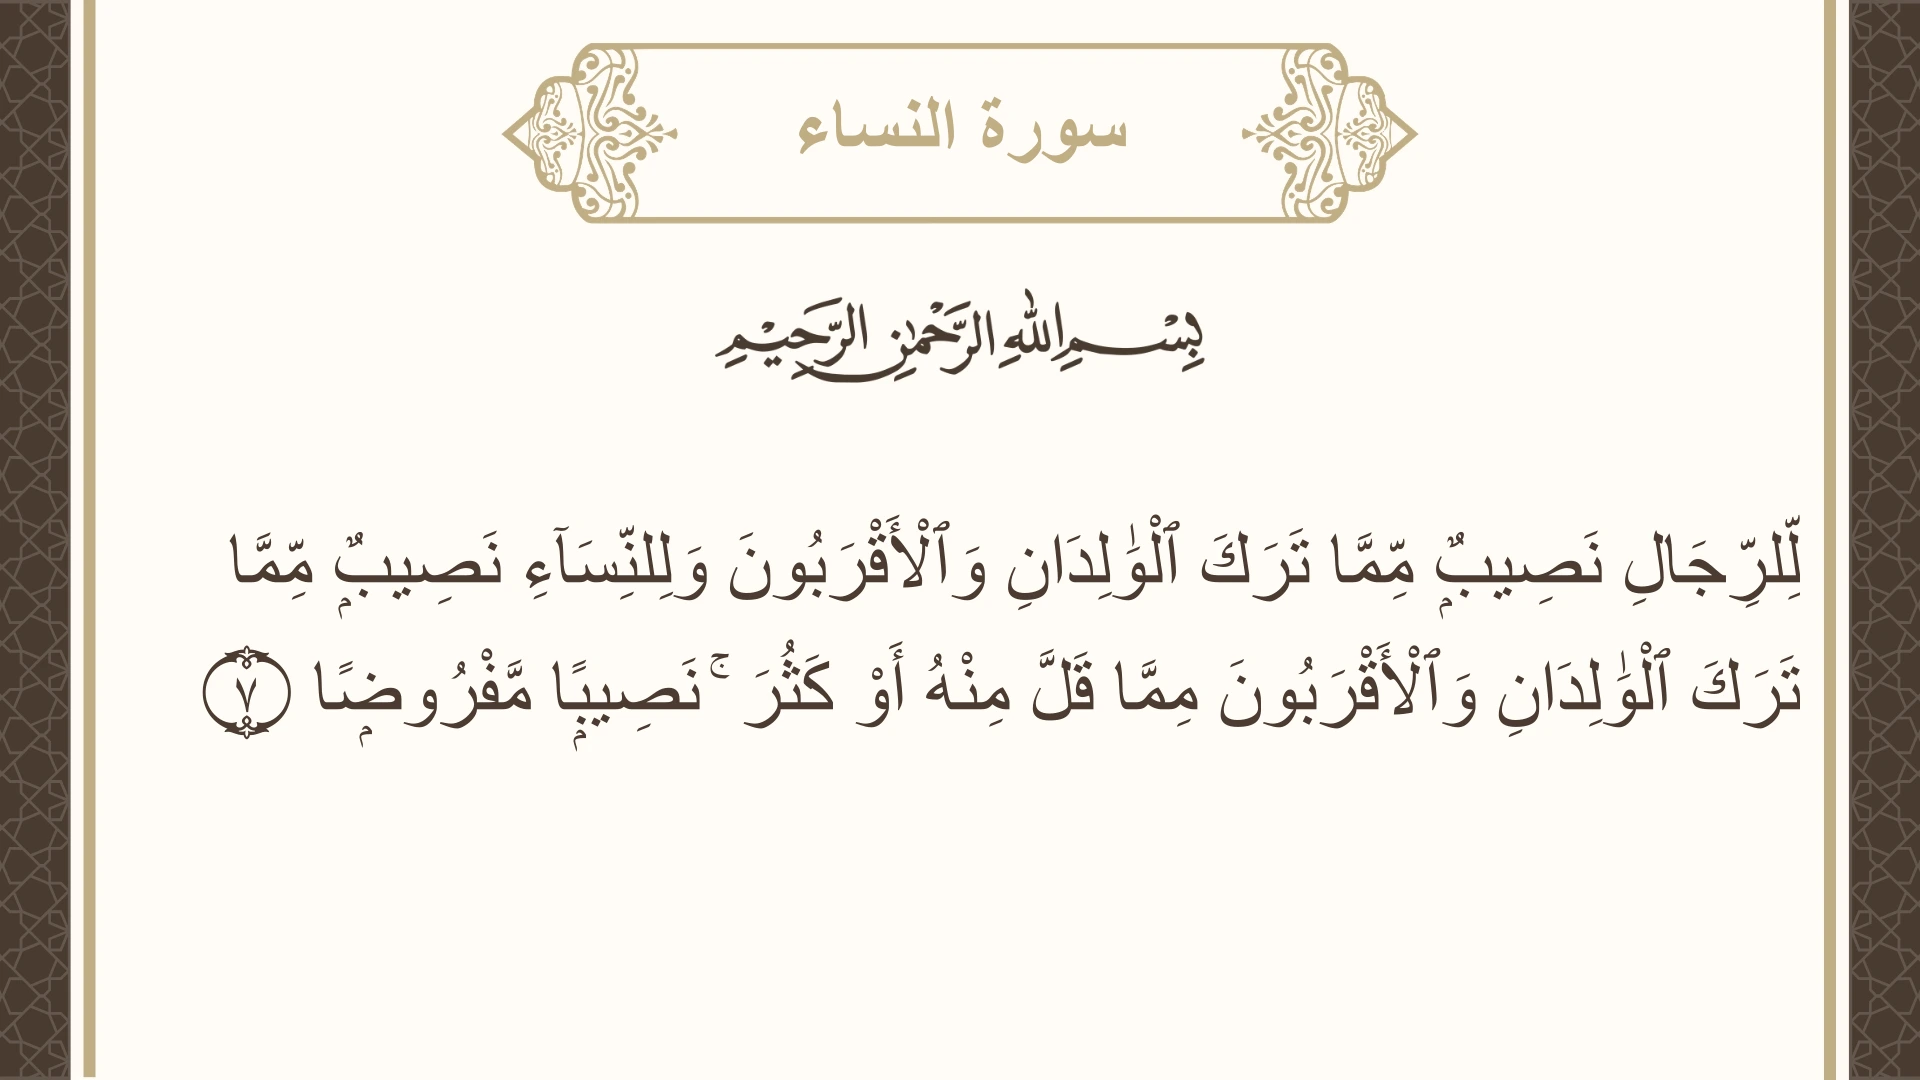 سورة النساء
بِسْمِ اللهِ الرَّحْمٰنِ الرَّحِيْمِ
لِّلرِّجَالِ نَصِيبٌۭ مِّمَّا تَرَكَ ٱلْوَٰلِدَانِ وَٱلْأَقْرَبُونَ وَلِلنِّسَآءِ نَصِيبٌۭ مِّمَّا
تَرَكَ ٱلْوَٰلِدَانِ وَٱلْأَقْرَبُونَ مِمَّا قَلَّ مِنْهُ أَوْ كَثُرَ ۚ نَصِيبًۭا مَّفْرُوضًۭا ٧